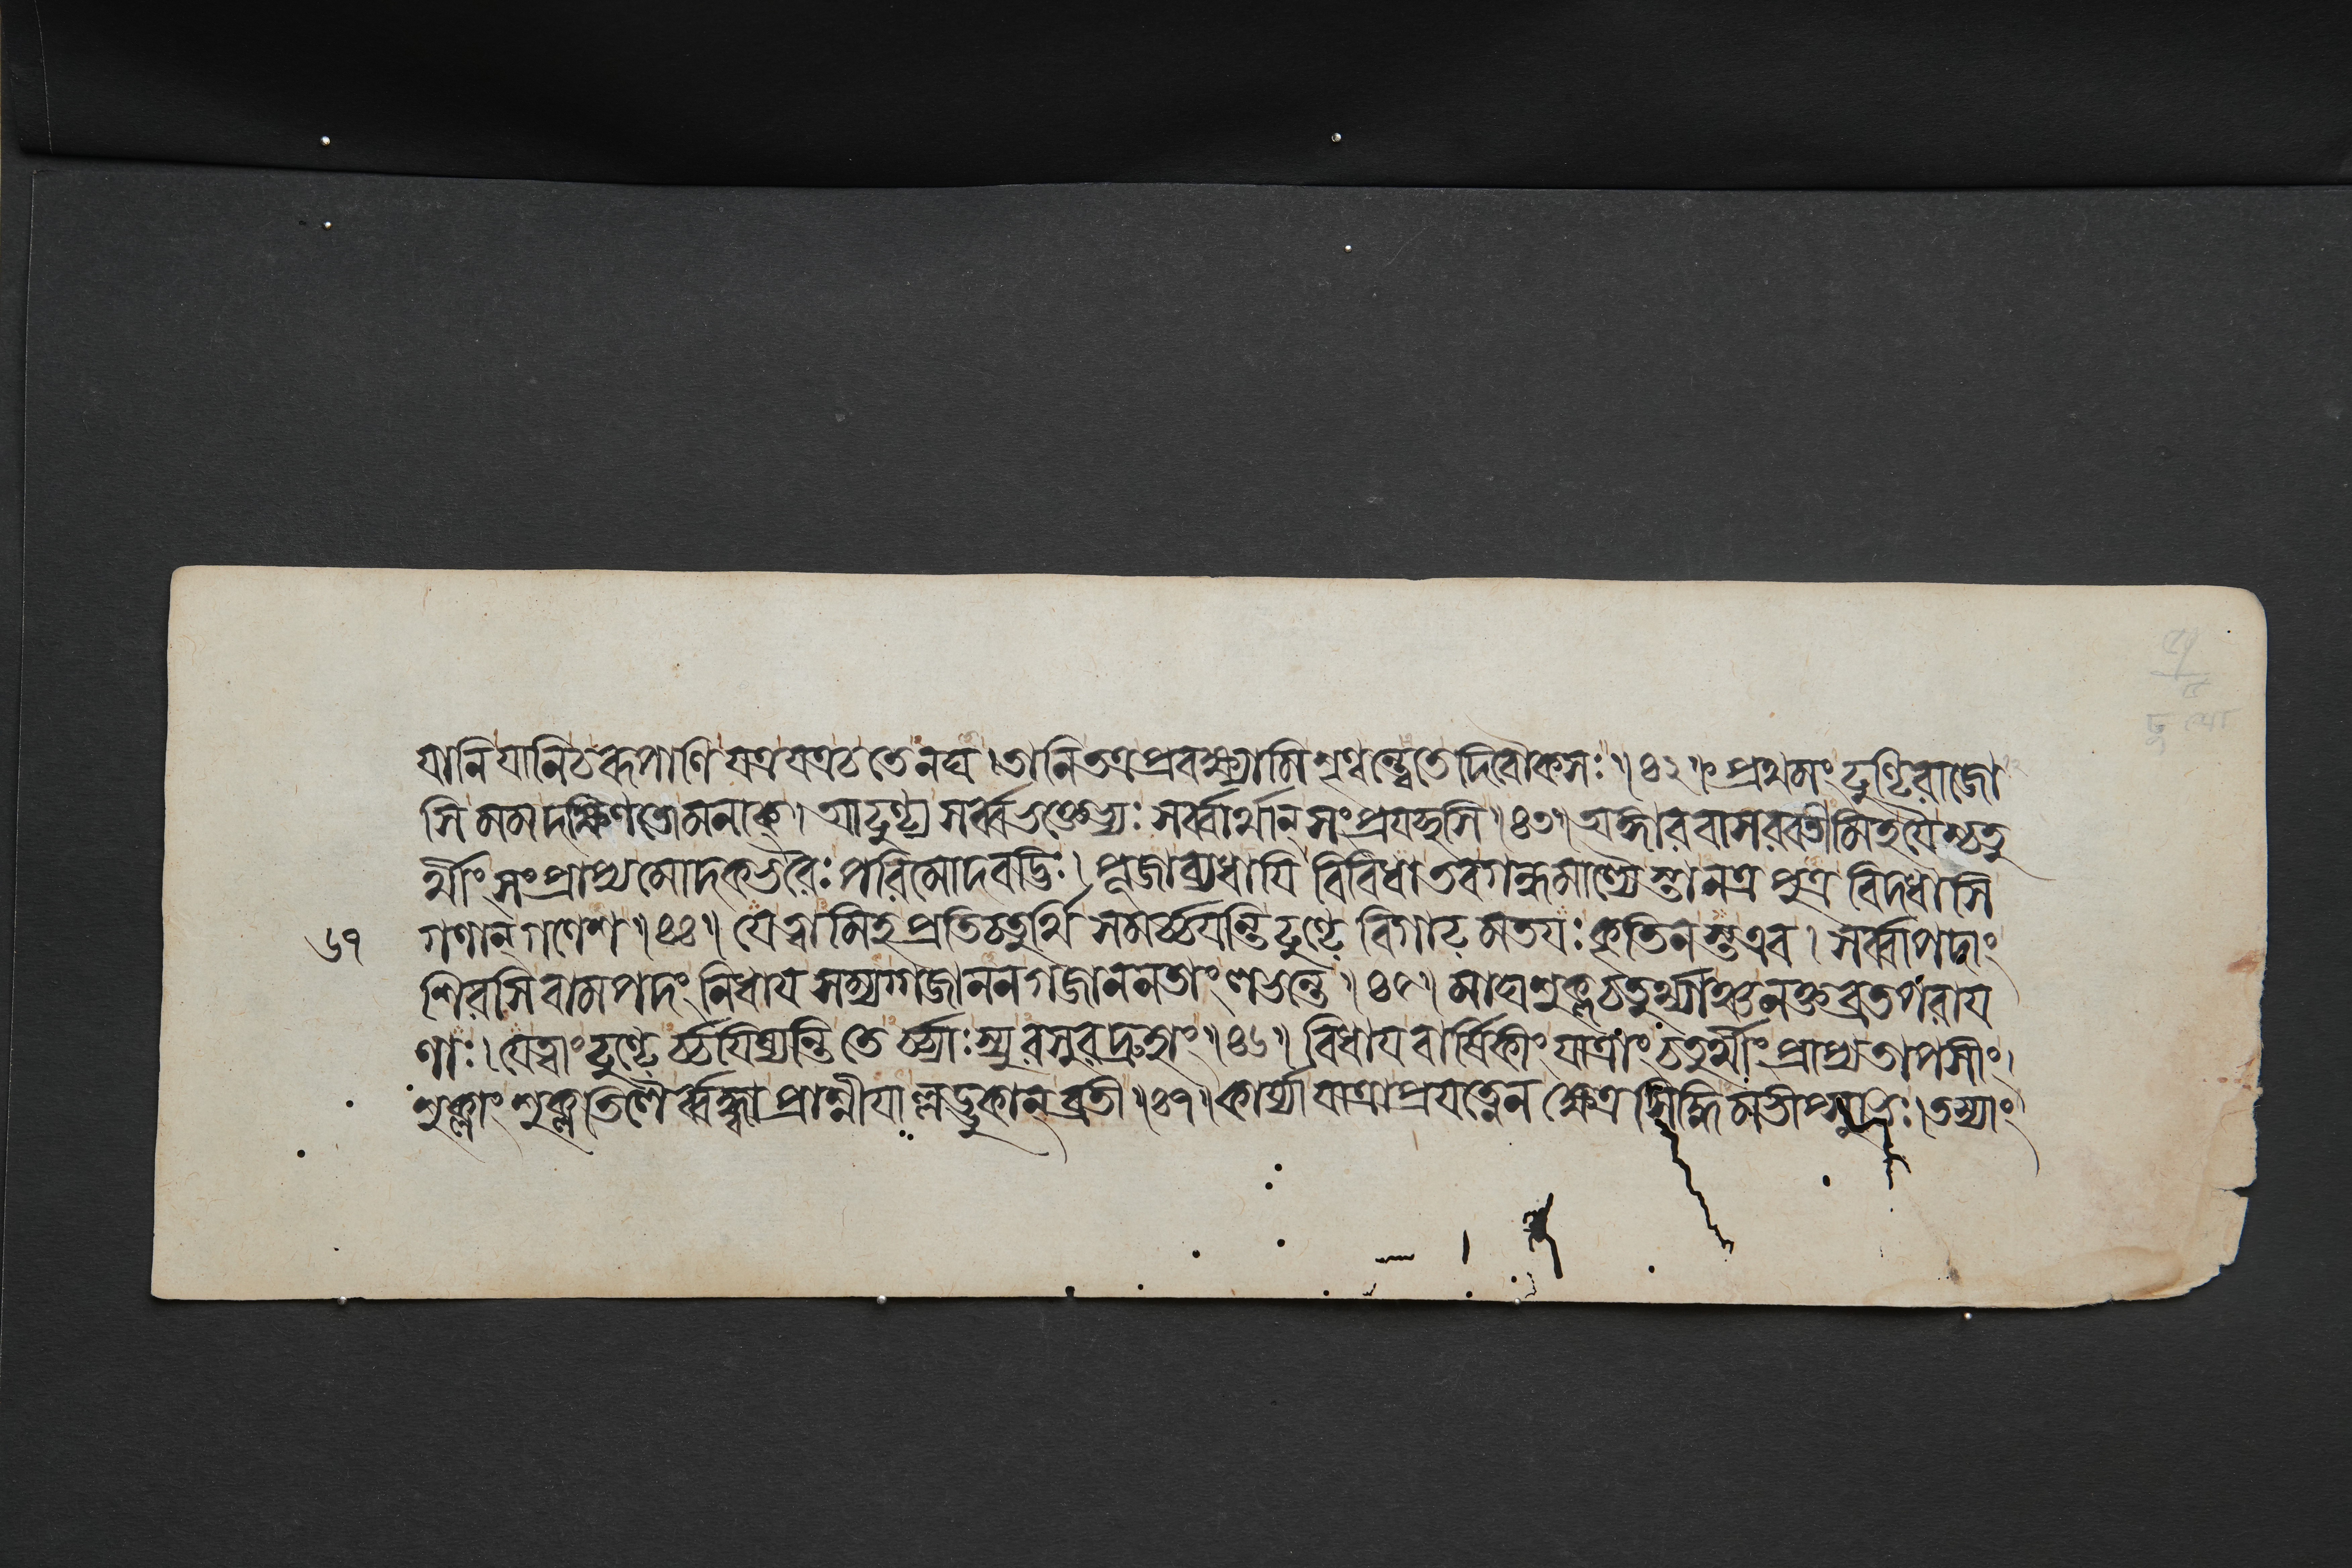 যানি যানি চ রূপাণি যত্র যত্র চ তেনঘ । তানি তত্র প্রবক্ষ্যামি শৃণ্বন্ত্বেতে দিবৌকসঃ ॥ ৪২ ॥ প্রথমং ঢুণ্ঢিরাজো
সি মম দক্ষিণতো মনাক্ । আঢুণ্ঢ্য সর্ব্বভক্তেভ্যঃ সর্ব্বার্থান্ সংপ্রযচ্ছসি ॥ ৪৩ ॥ অঙ্গারবাসরবতীমিহ যৈশ্চতু
র্থীং সংপ্রাপ্য মোদকভরৈঃ পরিমোদবদ্ভিঃ । পূজা ব্যধাযি বিবিধা তব গন্ধমাল্যৈস্তানত্র পুত্র বিদধাসি
৬৭ গণান্ গণেশ ॥ ৪৪ ॥ যে ত্বামিহ প্রতিচতুর্থি সমর্চ্চযন্তি ঢুণ্ঢে বিগাঢমতযঃ কৃতিনস্ত এব । সর্ব্বাপদাং
শিরসি বামপদং নিধায সম্যগ্গজানন গজাননতাং লভন্তে ॥ ৪৫ ॥ মাঘশুক্লচতুর্থ্যান্তু নক্তব্রতপরায
ণাঃ । যে ত্বাং ঢুণ্ঢের্চ্চযিষ্যন্তি তের্চ্চ্যাঃ স্যুরসুরদ্রুহাং ॥ ৪৬ ॥ বিধায বার্ষিকীং যাত্রাং চতুর্থীং প্রাপ্য তাপসীং ।
শুক্লাং শুক্লতিলৈর্ব্বদ্ধ্বা প্রাশ্নীযাল্লড্ডুকান্ ব্রতী ॥ ৪৭ ॥ কার্য্যা যাত্রা প্রযত্নেন ক্ষেত্রসিদ্ধিমভীপ্সুভিঃ । তস্যাং